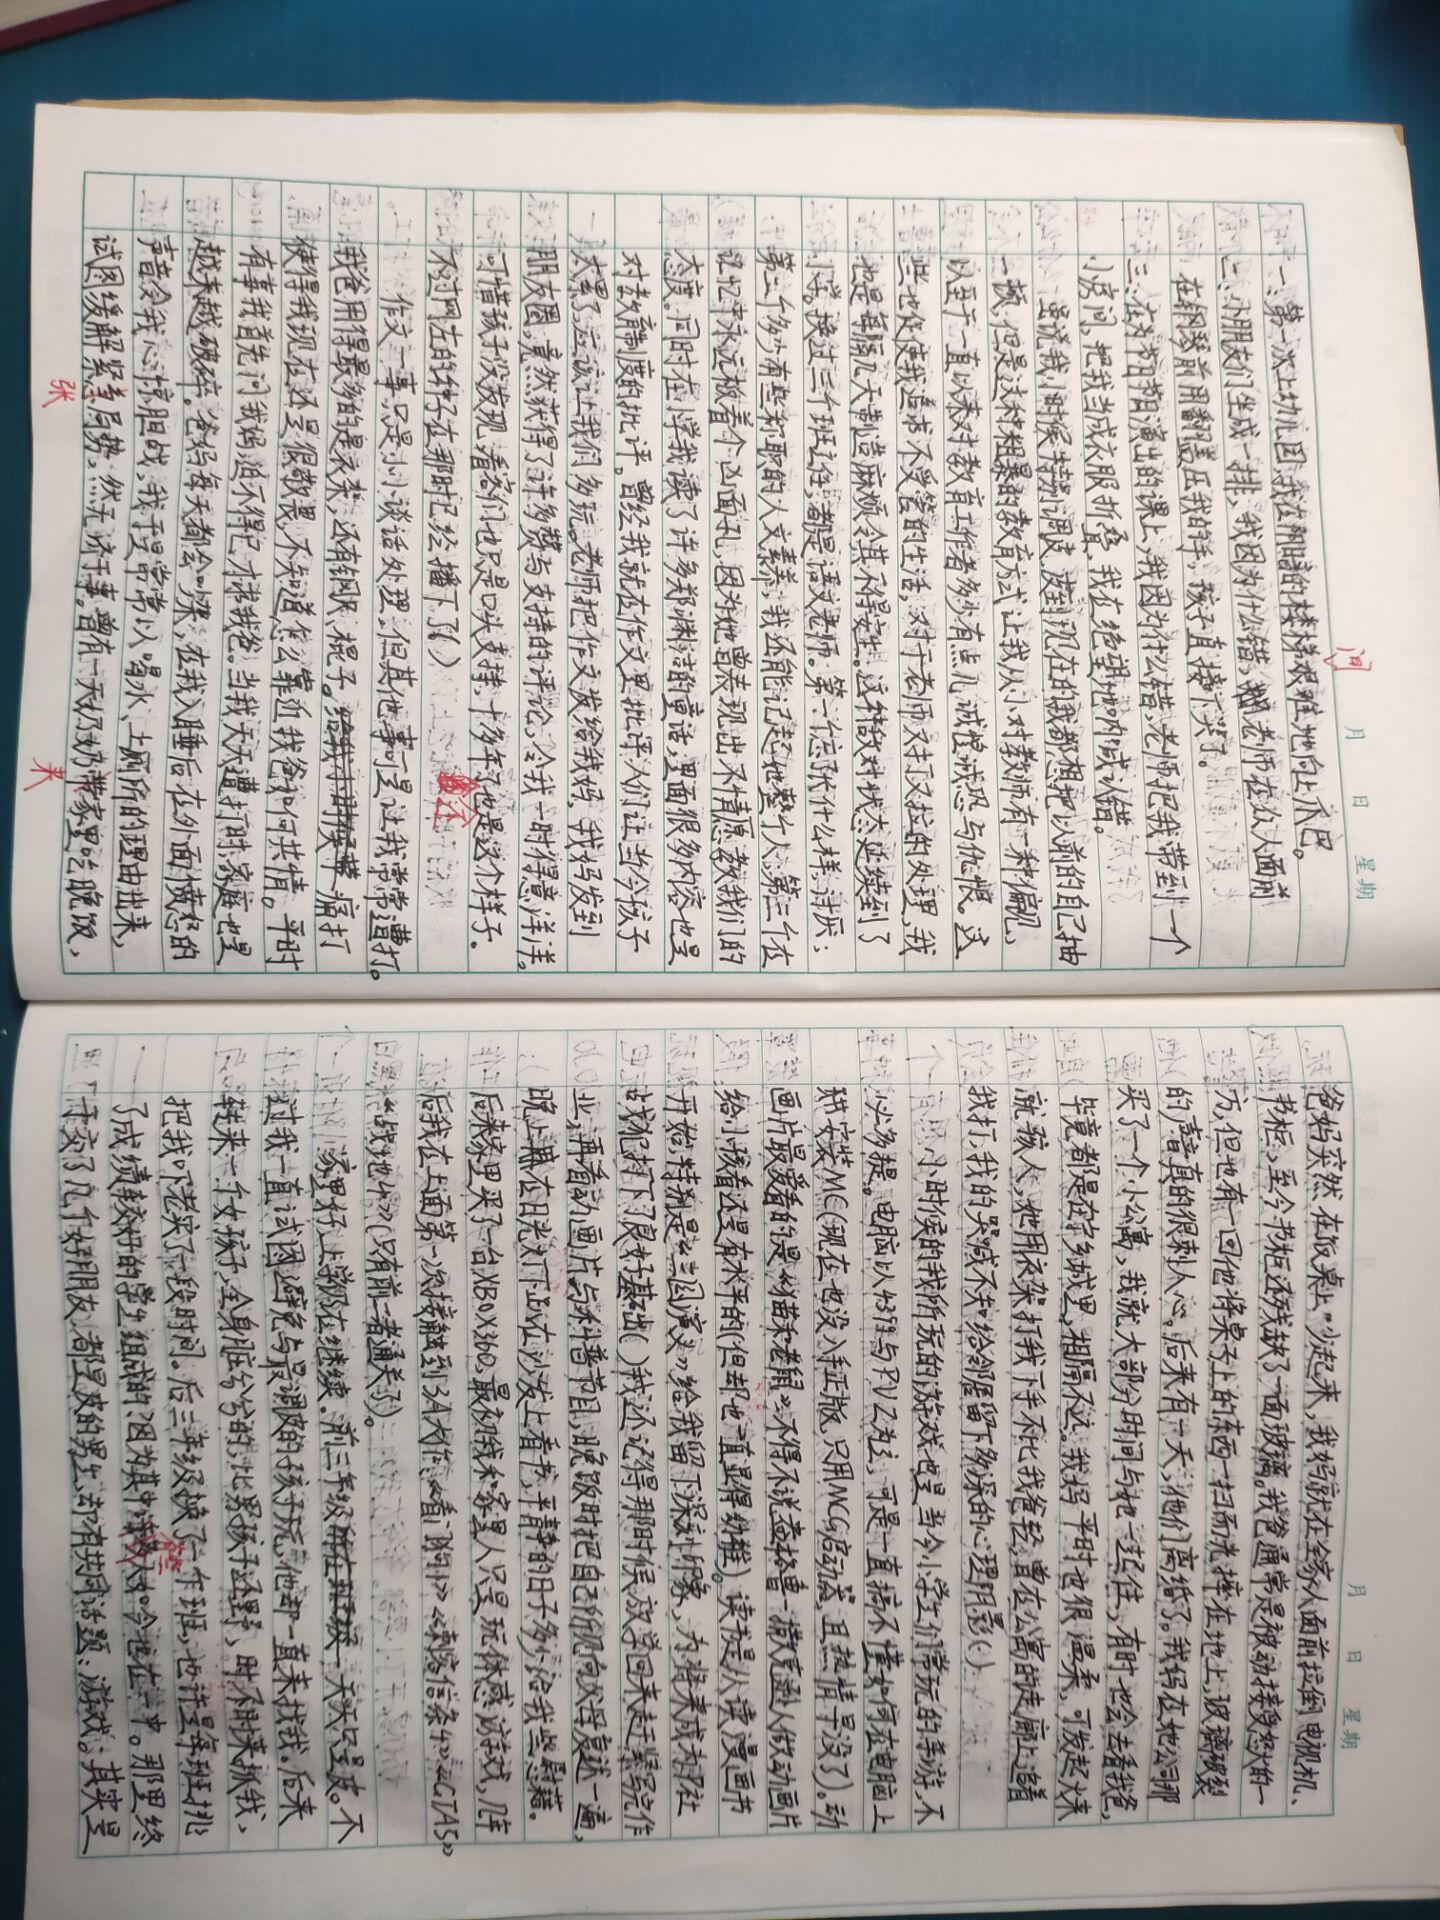 月 日 星期
一：第一次上幼儿园，我沿阴暗的楼梯艰难地向上爪巴。
间
二：小朋友们坐成一排，我因为什么错，被老师在众人面前
在钢琴前用翻盖压我的手，孩子直接卞哭了。
三：在为节目节演出的课上，我因为什么错，老师把我带到一个
小房间，把我当成衣服折叠，我在绝望地呐喊认错。
虽说我小时候特别调皮，皮到现在的我都想把以前的自己抽
一顿，但是这种粗暴的教育方式让我从小对教师有一种偏见，
以至于一直以来对教育工作者多少有点儿诚惶诚恐与仇恨。这
些也促使我追求不受管的生活，对于老师又打又拉的处理，我
也是每隔几天制造麻烦令其不得安生。这样敌对状态延续到了
小学。换过三个班主任，都是语文老师。第一个忘了长什么样，讨厌；
第二个多少有些称职的人文素养，我还能记起她整个人；第三个在
记忆中永远板着个凶面孔，因为她曾表现出不情愿教我们的
态度。同时在小学我读了许多郑渊洁的童话，里面很多内容也是
对教育制度的批评。曾经我就在作文里批评人们让当今孩子
太累了，应该让我们多玩。老师把作文发给我妈，我妈发到
朋友圈，竟然获得了许多赞与支持的评论，令我一时得意洋洋。
可惜孩子没发现，看客们也只是口头支持，十多年了也是这个样子。
不过网左的种子在那时已经播下了（）
作文一事只是小小谈话处理，但其他事可是让我常常遭打。
我爸用得最多的是衣架，还有钢尺、棍子。痛打
使得我现在还是很敬畏，不知道怎么靠近我爸如何共情。平时
有事我首先问我妈，迫不得已才找我爸。当我天天遭打时，家庭也是
越来越破碎。爸妈每天都会吵架，在我入睡后在外面愤怒的
声音令我心惊胆战，我于是常常以喝水、上厕所的理由出来，
试图缓解紧张局势，然无济于事。曾有一天奶奶来家里吃晚饭，
张
来
月 日 星期
爸妈突然在饭桌上吵起来，我妈就在全家人面前拉倒电视机、
书柜，至今书柜还残缺了一面玻璃。我爸通常是被动接受怒火的一
方，但也有一回他将桌子上的东西一扫而光摔在地上，玻璃破裂
的声音真的很刺人心。后来有一天，他们离婚了。我妈在她公司那
买了一个小公寓，我就大部分时间与她一起住，有时也会去看我爸，
毕竟都是在宁乡城里，相隔不远。我妈平时也很温柔，可发起火来
就骇人，她用衣架打我下手不比我爸轻，曾在公寓的走廊上追着
我打，我的哭喊不知给邻居留下多深的心理阴影（）
小时候的我所玩的游戏也是当今小学生们常玩的手游，不
必多提。电脑以4399与PVZ为主，可是一直搞不懂如何在电脑上
安装MC（现在也没入手正版，只用MCG启动器，且热情早没了）。动
画片最爱看的是《猫和老鼠》，不得不说查格鲁一撒克逊人做动画片
给小孩看还是有水平的（但却也一直显得幼稚）。读书是从读漫画书
开始，特别是《三国演义》给我留下深刻印象，为将来成为P社
战犯打下了良好基础（）我还记得那时候放学回来赶紧写完作
业，再看动画片与科普节目，晚饭时把自己所见向父母复述一遍，
晚上在日光灯下趴在沙发上看书，平静的日子多少给我些慰藉。
后来家里买了一台XBOX360，最初我和家里人只是玩体感游戏，几年
后我在上面第一次接触到3A大作，《看门狗1》《刺客信条4》《GTA5》
《战地4》（只有前二者通关了）。
家里好，上学仍在继续。前三年级天天只是皮。不
过我一直试图避免与最调皮的孩子玩，他却一直来找我。后来
转来一个女孩子，全身脏兮兮的，比男孩子还野，时不时来抓我，
把我吓老实了一段时间。后三年级换了一个班，也许是每班挑
了成绩较好的学生组成的，因为其中许多人如今也在一中。那里终
于交了几个好朋友，都是皮的男生，却有共同话题：游戏。其实是